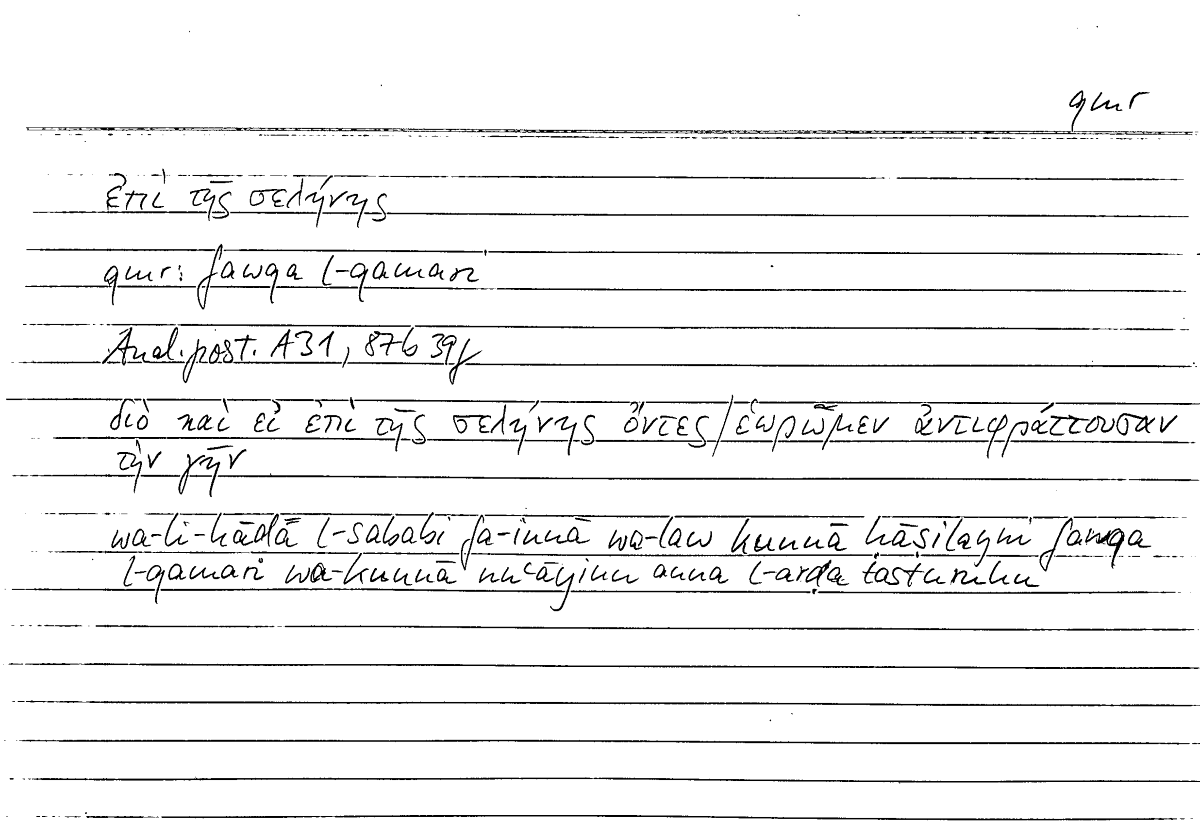 qmr
ἐπὶ τῆς σελήνης
qmr: fawqa l-qamari
Anal. post. A31, 87b 39f
διὸ καὶ εἰ ἐπὶ τῆς σελήνης ὄντες/ἑωρῶμεν ἀντιφράττουσαν
τὴν γῆν
wa-li-hāḏā l-sababi fa-innā wa-law kunnā ḥāṣilayni fawqa
l-qamari wa-kunnā nuʿāyinu anna l-arḍa tasturuhu